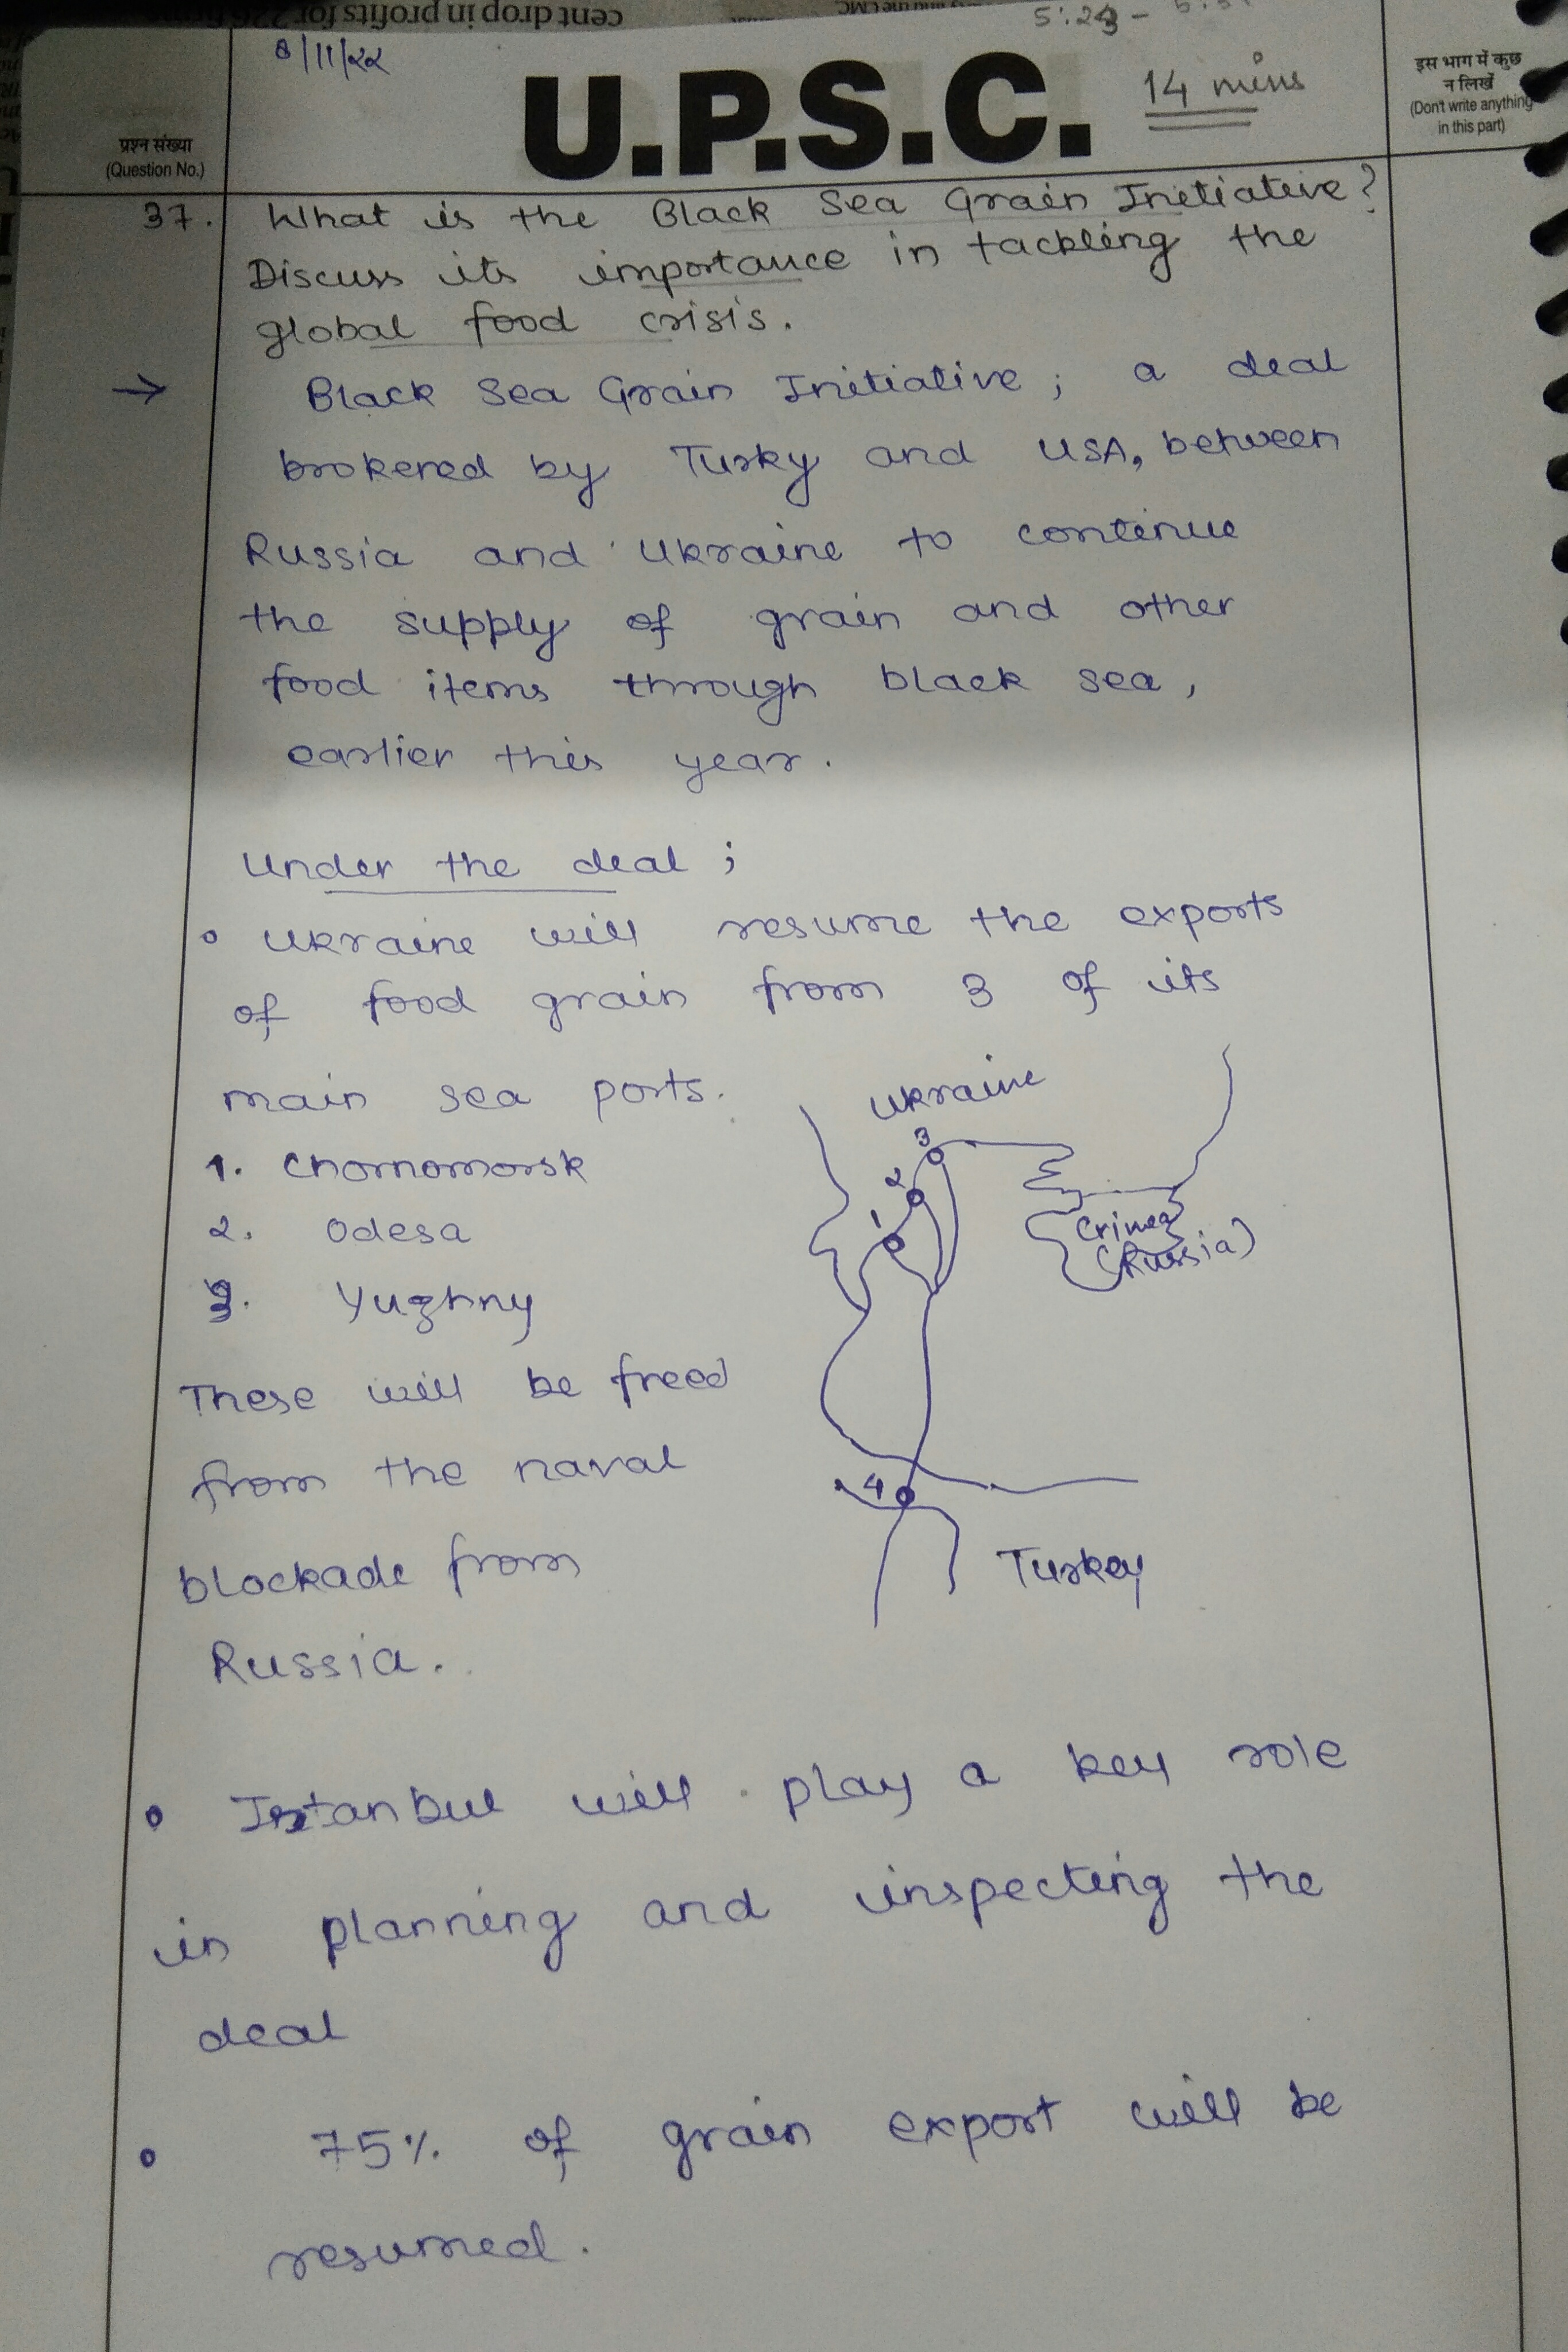 cent drop in profits for
5:23 -
8/11/22
U.P.S.C.
14 mins
इस भाग में कुछ
न लिखें
(Don't write anything
in this part)
प्रश्न संख्या
(Question No.)
37. What is the Black Sea Grain Initiative?
Discuss its importance in tackling the
global food crisis.
→ Black Sea Grain Initiative; a deal
brokered by Turky and USA, between
Russia and Ukraine to continue
the supply of grain and other
food items through black sea,
earlier this year.
Under the deal;
• Ukraine will resume the exports
of food grain from 3 of its
main sea ports.
1. Chornomorsk
2. Odesa
3. Yuzhny
These will be freed
from the naval
blockade from
Russia.
Ukraine
3
2
1
Crimea
(Russia)
4
Turkey
• Istanbul will play a key role
in planning and inspecting the
deal
• 75% of grain export will be
resumed.